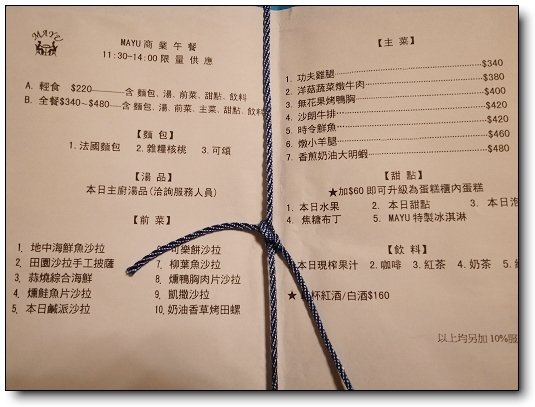 MAYU
MAYU 商業午餐
11:30-14:00 限量供應
A. 輕食 $220——含 麵包、湯、前菜、甜點、飲料
B. 全餐$340~$480——含 麵包、湯、前菜、主菜、甜點、飲料
【麵包】
1.法國麵包 2.雜糧核桃 3.可頌
【湯品】
本日主廚湯品(洽詢服務人員)
【前菜】
1. 地中海鮮魚沙拉
2. 田園沙拉手工披薩
3. 蒜燒綜合海鮮
4. 燻鮭魚片沙拉
5. 本日鹹派沙拉
可樂餅沙拉
7. 柳葉魚沙拉
8. 燻鴨胸肉片沙拉
9. 凱撒沙拉
10. 奶油香草烤田螺
【主菜】
1. 功夫雞腿 $340
2. 洋菇蔬菜燉牛肉 $380
3. 無花果烤鴨胸 $400
4. 沙朗牛排 $420
5. 時令鮮魚 $420
6. 燉小羊腿 $460
7. 香煎奶油大明蝦 $480
【甜點】
★加$60 即可升級為蛋糕櫃內蛋糕
1. 本日水果 2. 本日甜點 3. 本日
4. 焦糖布丁 5. MAYU 特製冰淇淋
【飲料】
本日現榨果汁 2.咖啡 3.紅茶 4.奶茶 5.
★ 杯紅酒/白酒$160
以上均另加 10%服